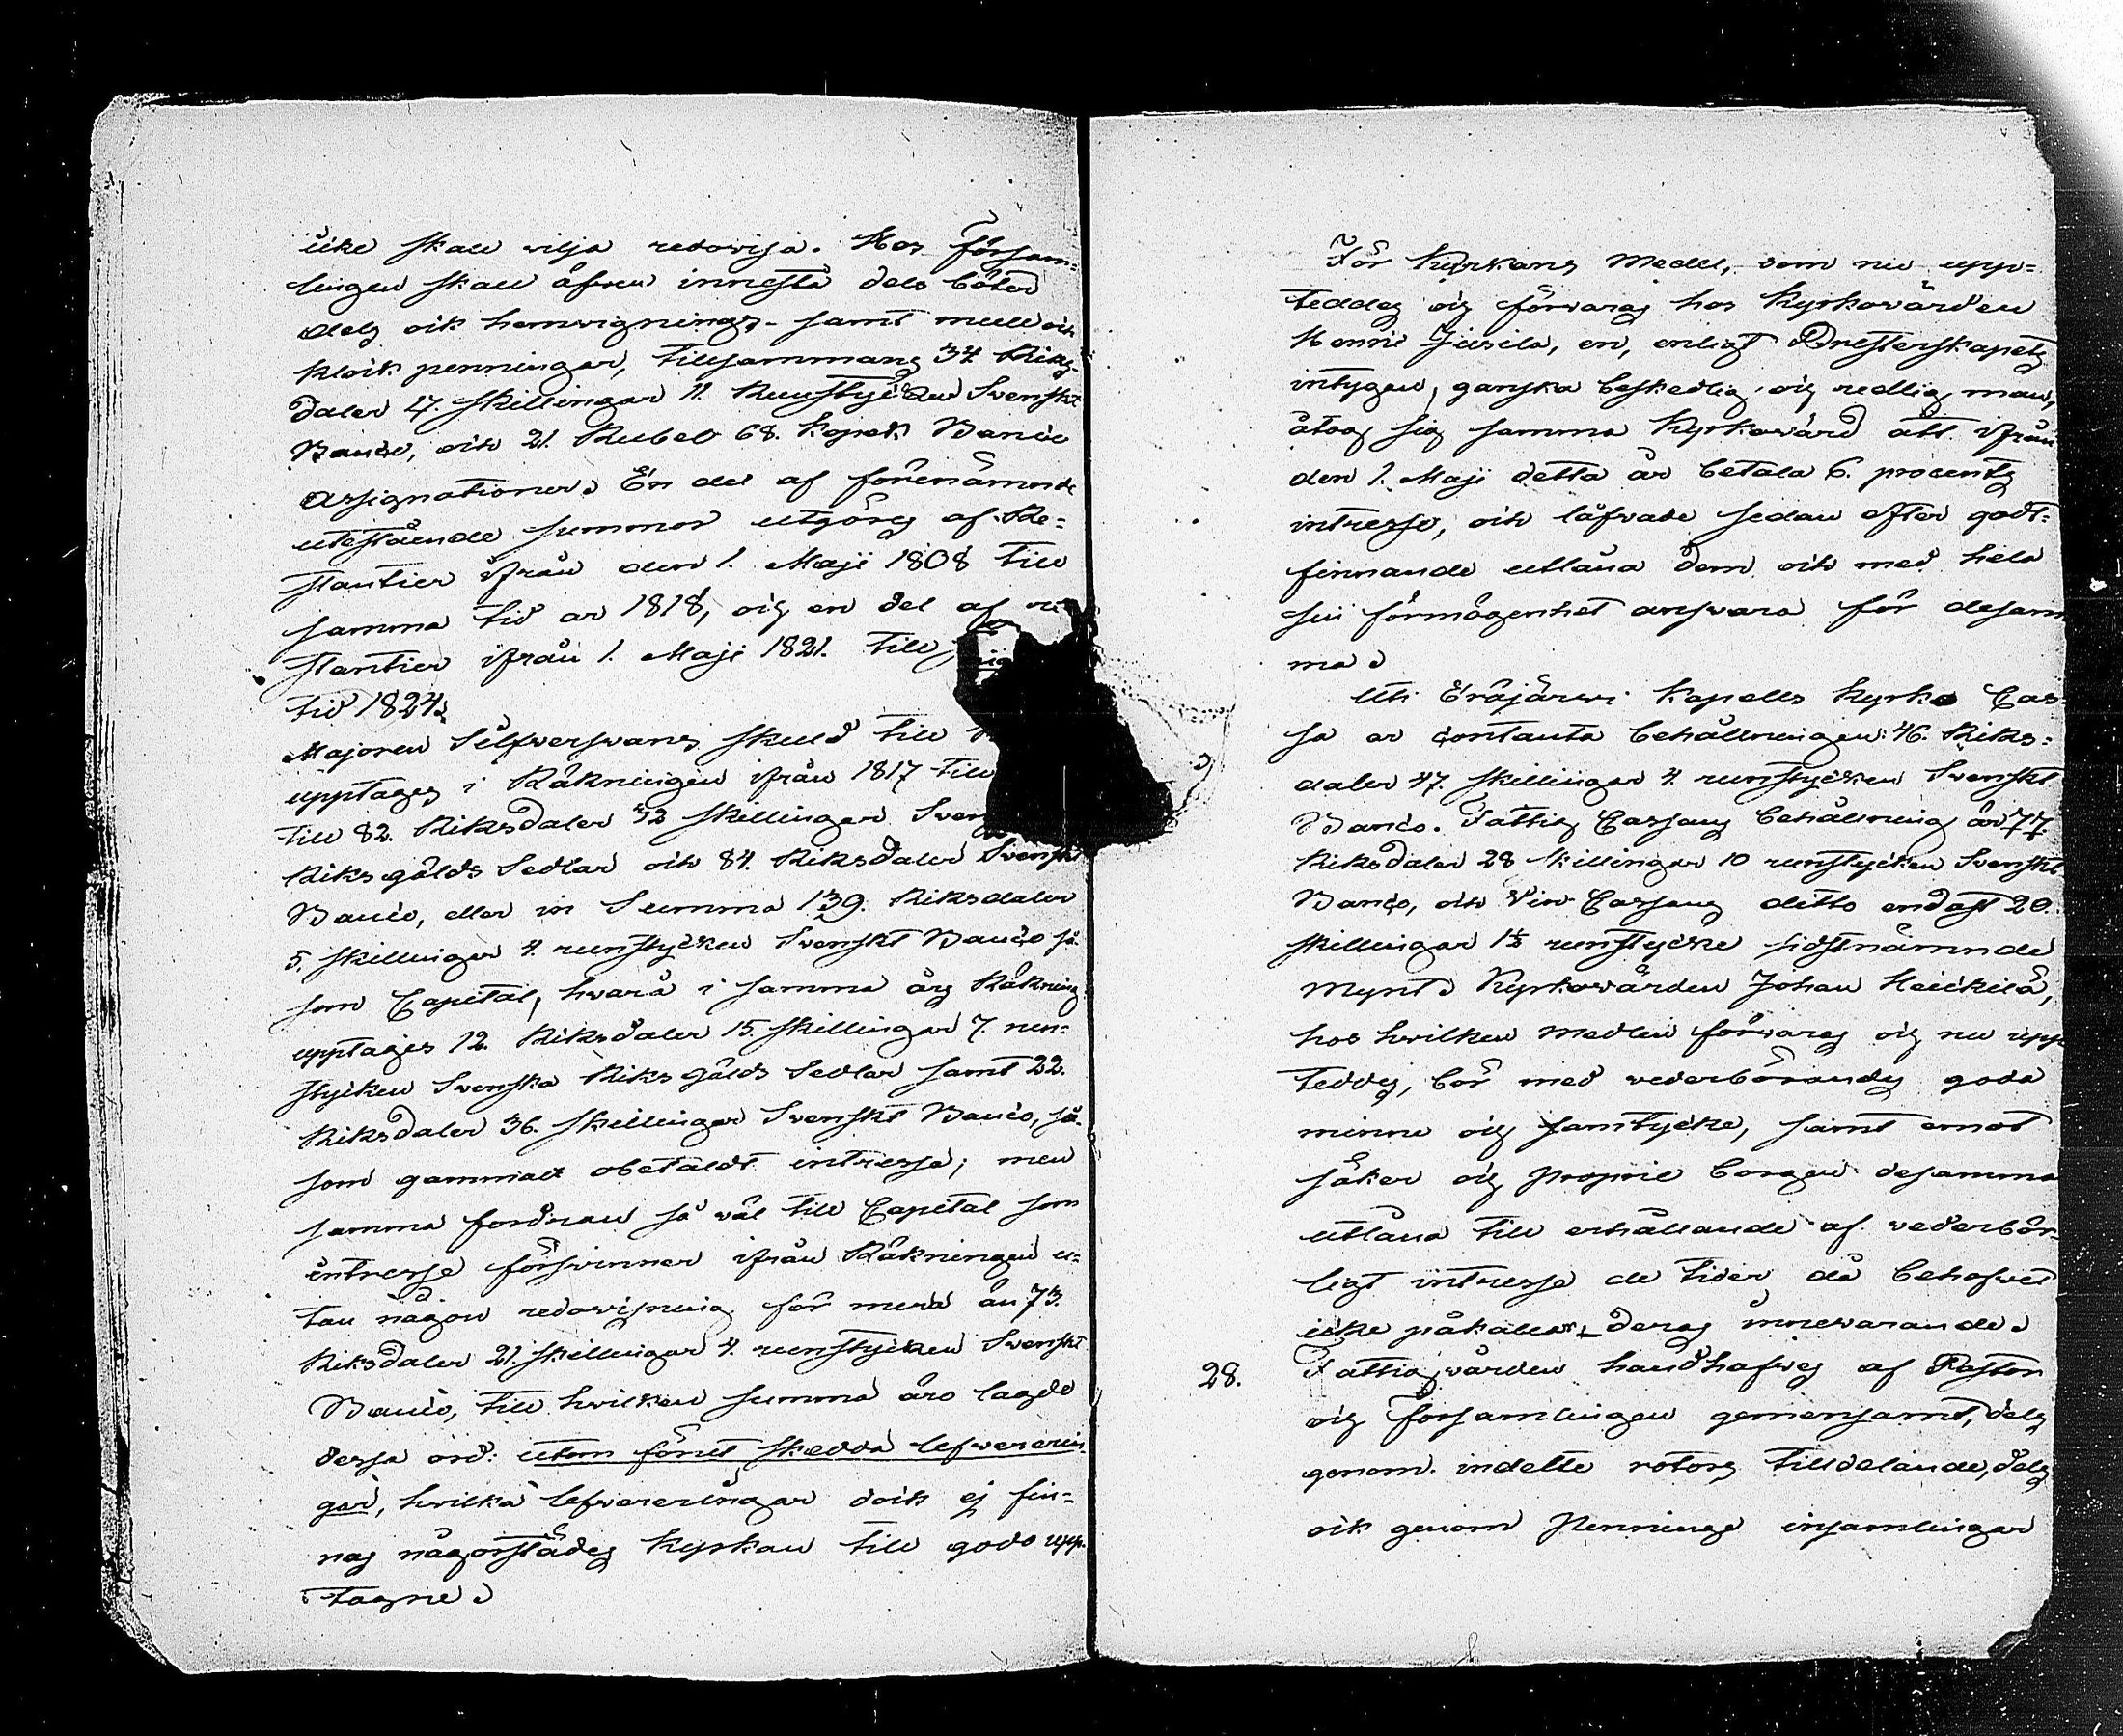 icke skall vilja redovisa. Hos försam=
lingen skall äfven innestå dels böter
dels och hemvignings- samt mull och
klock penningar, tillsammans 34 Riks-
daler 47. skillingar 11. Runstycken Svenskt
Banco, och 21. Rubel 68. Kopek Banco
assignationer. En del af förenämnde
utestående summor utgöres af Re=
stantier ifrån den 1. Maji 1808 till
samma tid av 1818, och en del af
stantier ifrån 1. Maji 1821. till
tid 1824.
Majoren Silfversvans skuld till
upptages i Räkningen ifrån 1817 till
till 82. Riksdaler 42 skillingar
Riksgälds Sedlar och 84. Riksdaler Svenskt
Banco, eller in Summa 139. Riksdaler
5. skillingar 4. runstycken Svenskt Banco så
som Capital, hvarå i samma års Räkning
upptages 12. Riksdaler 15. skillingar 7. run=
stycken Svenska Riksgälds Sedlar samt 22.
Riksdaler 36. skillingar Svenskt Banco, så-
som gammalt obetaldt intresse; men
samma fordran så väl till Capital som
intresse försvinner ifrån Räkningen u=
tan någon redovisning för mera än 73.
Riksdaler 21. skillingar 4. runstycken Svenskt
Banco, till hvilken summa äro lagde
dessa ord: utom förut skedda lefvererin-
gar, hvilka lefvereringar dock ej fin=
nas någorstädes Kyrkan till godo upp-
tagne.
För Kyrkans Medel, som nu upp=
teddes och förvaras hos Kyrkovärden
Henric Jusila, en, enligt Presterskapets
intygan, ganska beskedlig och redlig man,
åtog sig samma Kyrkovärd att ifrån
den 1. Maji detta år betala 6. procents
intresse, och låfvade sedan efter godt-
finnande utlåna dem och med hela
sin förmögenhet ansvara för desam
ma.
Uti Eräjärvi Kapells Kyrko Cas-
sa är contanta behållningen: 46. Riks=
daler 47. skillingar 4. runstycken Svenskt
Banco. Fattig Cassans behållning är 77.
Riksdaler 28 skillingar 10 runstycken Svenskt
Banco, och Vin Cassans ditto endast 20.
skillingar 1½ runstycke sidstnämnde
Mynt. Kyrkovärden Johan Heickilä,
hos hvilken medlen förvaras och nu upp
teddes, bör med vederbörandes goda
minne och samtycke, samt emot
säker och proprie borgen desamma
utlåna till erhållande af vederbör-
ligt intresse de tider då behofvet
icke påkallar deras innevarande.
28. Fattigvården handhafves af Pastor
och församlingen gemensamt, dels
genom indelte rotors tilldelande, dels
ock genom Pennings insamlingar